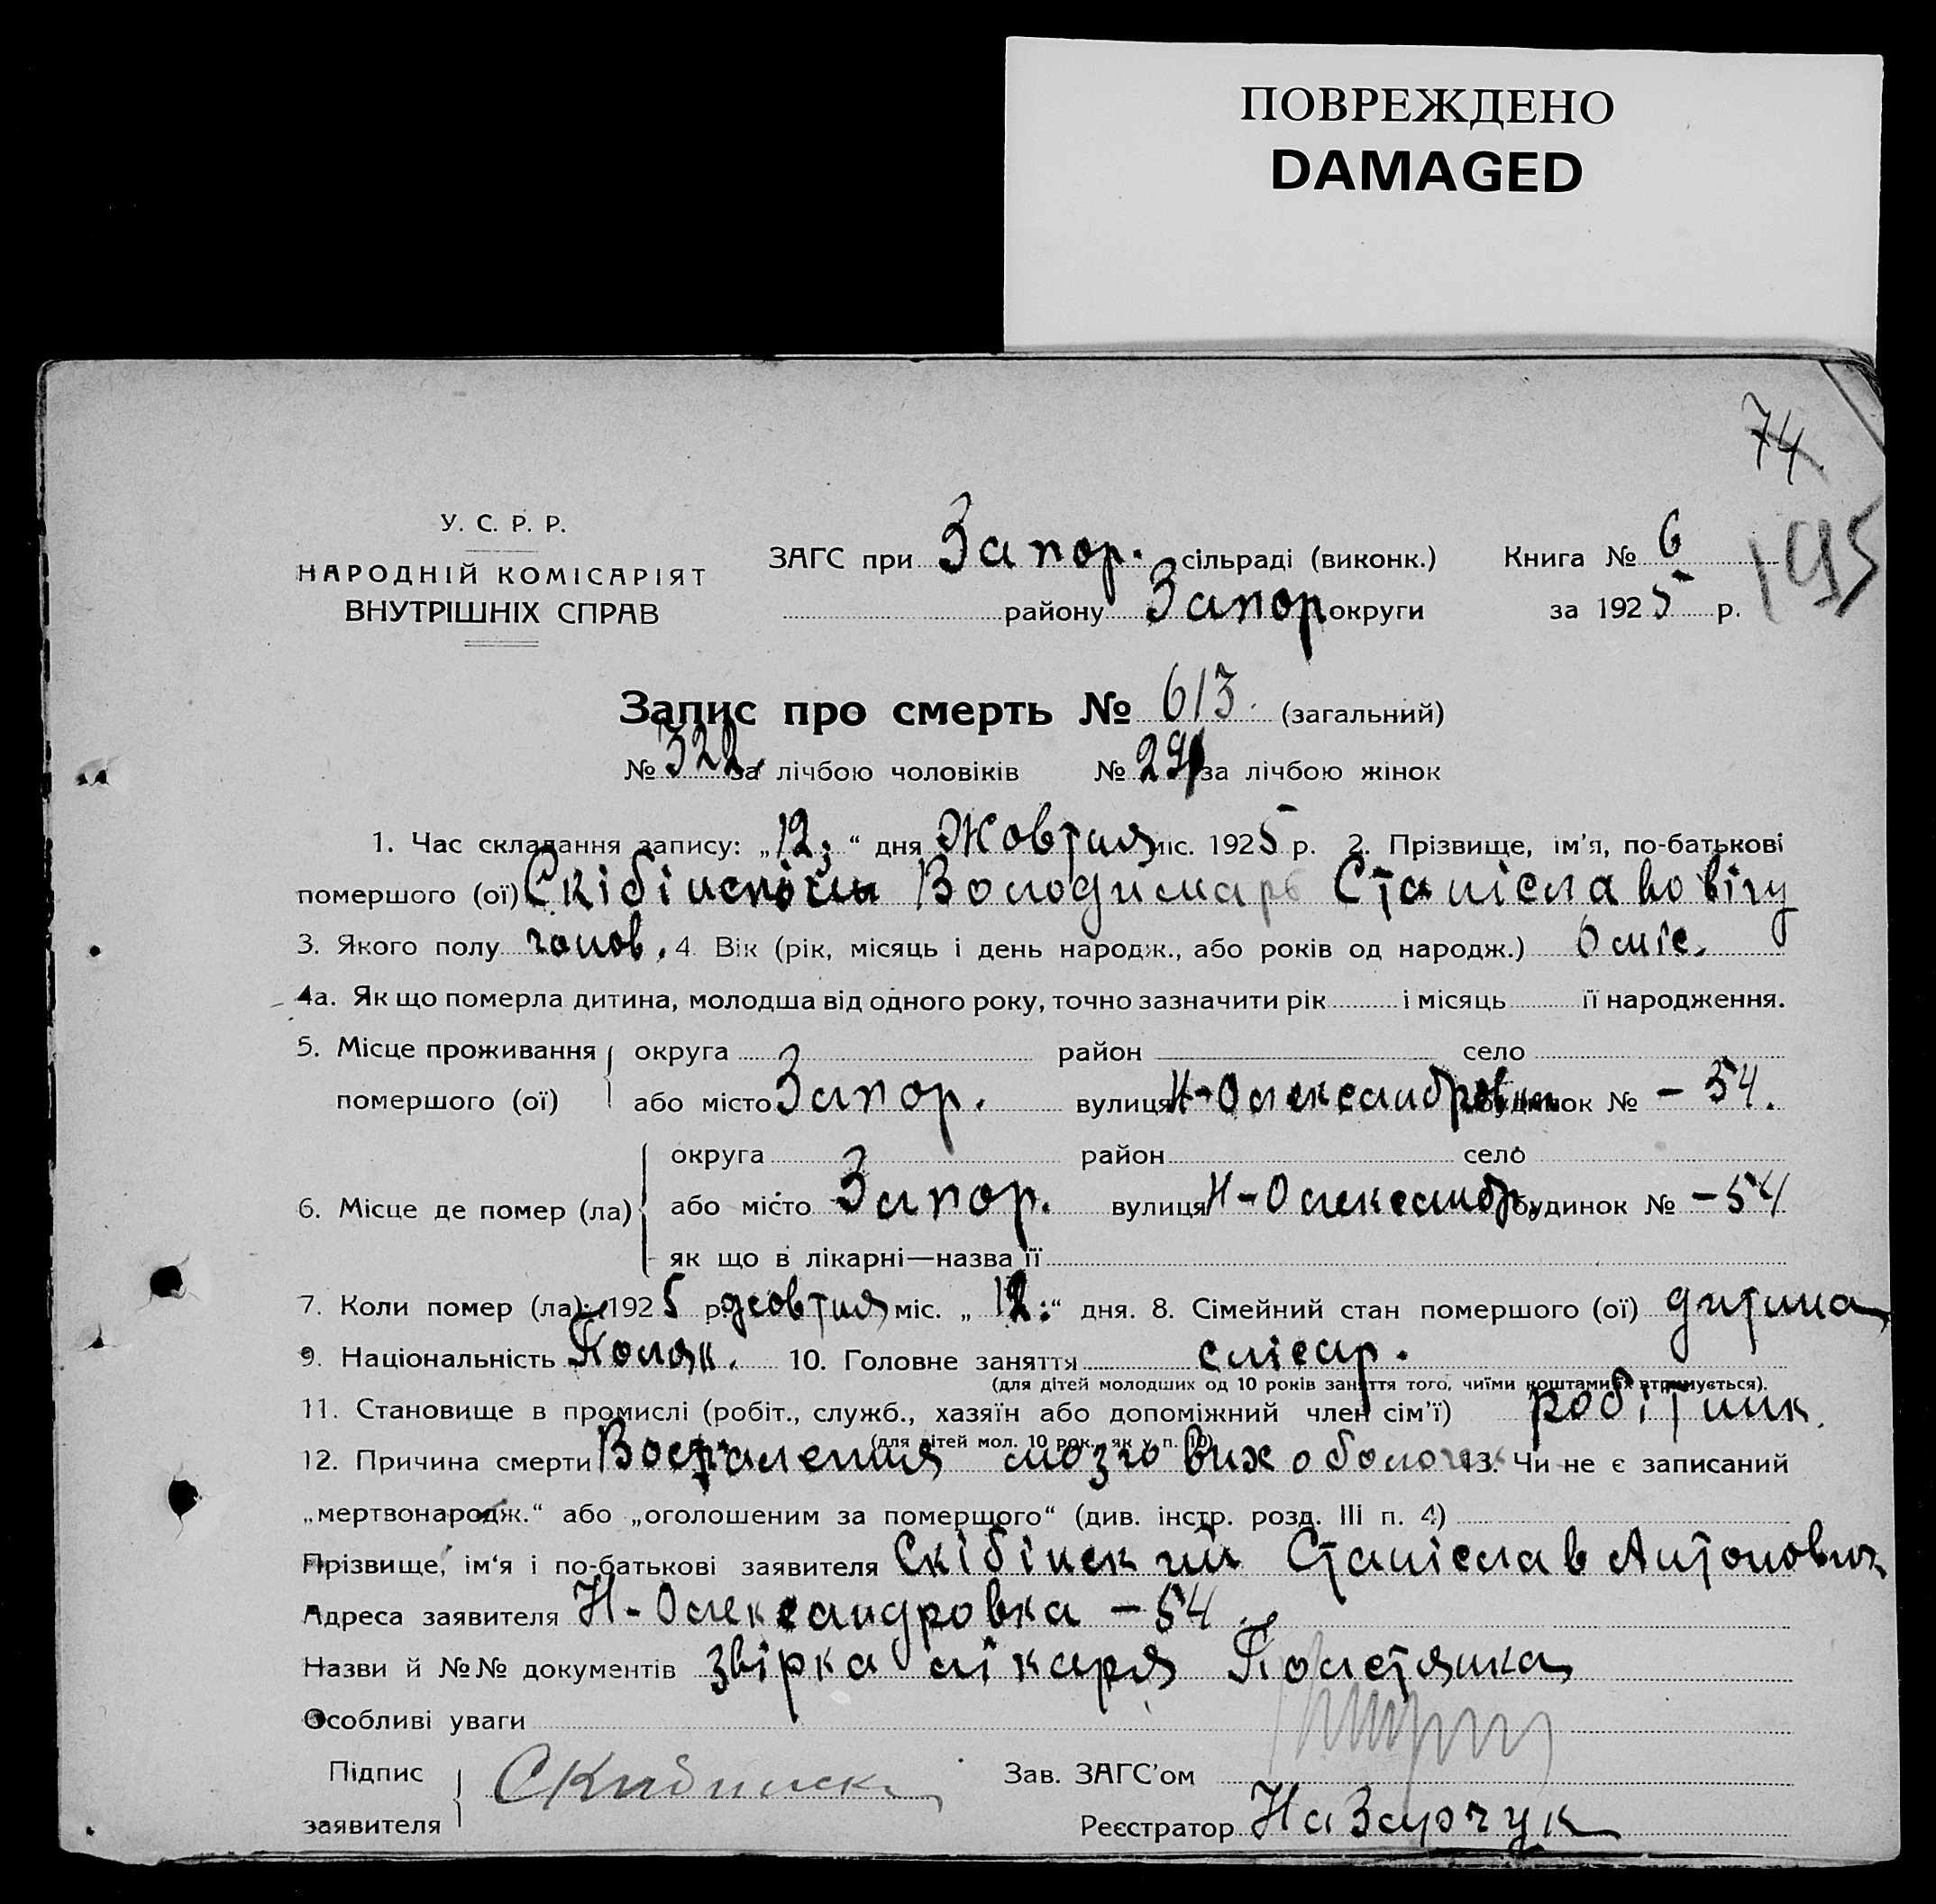 ПОВРЕЖДЕНО
DAMAGED
74
195
У. С. Р. Р.
НАРОДНІЙ КОМІСАРІЯТ
ВНУТРІШНІХ СПРАВ
ЗАГС при Запор. сільраді (виконк.) Книга № 6
району Запор округи за 1925 р.
Запис про смерть № 613. (загальний)
№ 322 за лічбою чоловіків № 291 за лічбою жінок
1. Час складання запису: „12“ дня Жовтня міс. 1925 р. 2. Прізвище, ім'я, по-батькові
помершого (ої) Володимарь Станіславовіч
3. Якого полу чолов. 4. Вік (рік, місяць і день народж., або років од народж.) 6 міс.
4а. Як що померла дитина, молодша від одного року, точно зазначити рік і місяць її народження.
5. Місце проживання округа район село
помершого (ої) або місто Запор. вулиця Н-Олександровка будинок № – 54.
округа район село
6. Місце де помер (ла) або місто Запор. вулиця Н-Олександр. будинок № – 54
як що в лікарні—назва її
7. Коли помер (ла): 1925 р. жовтня міс. „12“ дня. 8. Сімейний стан помершого (ої) дитина
9. Національність Поляк. 10. Головне заняття слісар.
(для дітей молодших од 10 років заняття того, чиїми коштами їх втримується).
11. Становище в промислі (робіт., служб., хазяїн або допоміжний член сім'ї) робітник.
(для дітей мол. 10 рок., як у п. 10)
12. Причина смерти Воспаления мозгових оболочек 13. Чи не є записаний
„мертвонародж.“ або „оголошеним за помершого“ (див. інстр. розд. III п. 4)
Прізвище, ім'я і по-батькові заявителя Скібінский Станіслав Антонович
Адреса заявителя Н-Олександровка – 54.
Назви й №№ документів звірка лікаря
Особливі уваги
Підпис Зав. ЗАГС'ом
заявителя Реєстратор Назарчук